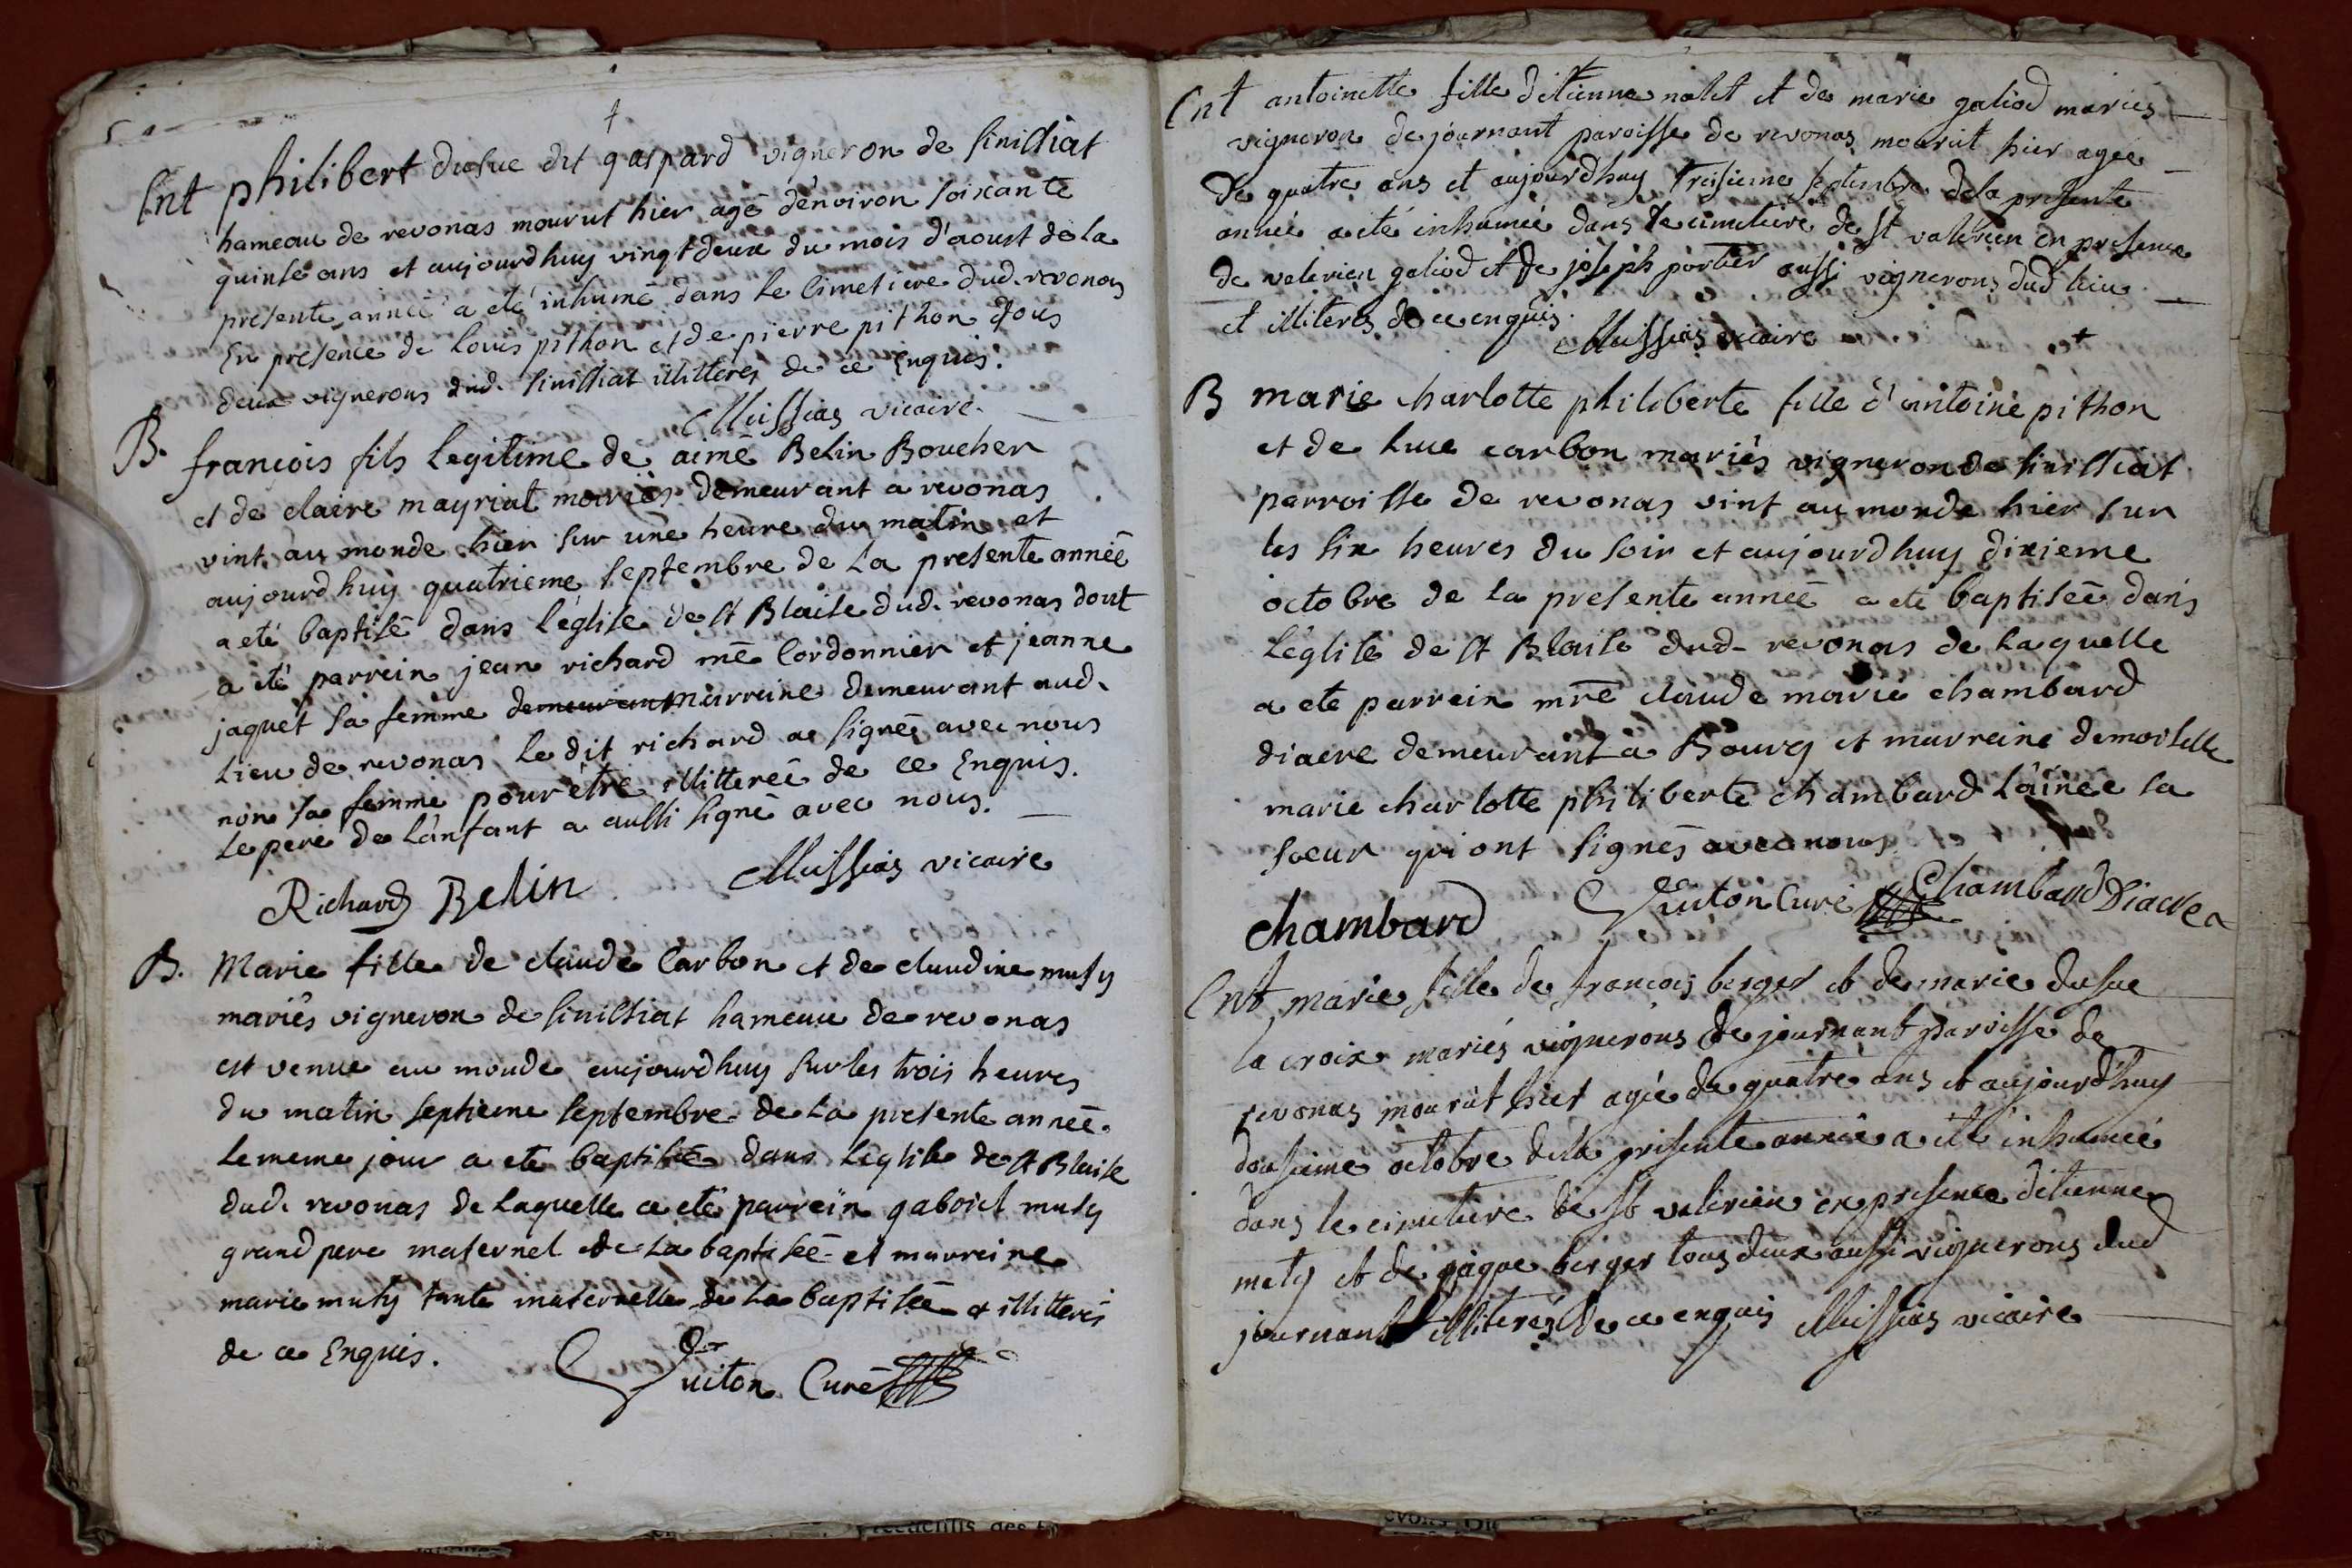 Ent philibert dusuc dit gaspard vigneron de sinissiat
hameau de revonas mourut hier agé d'environ soixante
quinse ans et aujourdhuy vingt deux du mois d'aoust de la
presente année a eté inhumé dans le Cimetiere dud. revonas
En presence de louis pithon et de pierre pithon tous
deux vignerons dud. sinissiat illitterés de ce Enquis.
Mussias vicaire.
B. francois fils legitime de aimé Belin Boucher
et de claire mayriat mariés demeurant a revonas
vint au monde hier sur une heure du matin et
aujourdhuy quatrieme septembre de la presente année
a eté baptisé dans l'église de st Blaise dud. revonas dont
a eté parrein jean richard me Cordonnier et jeanne
jaquet sa femme demeurant marreine demeurant aud.
lieu de revonas le dit richard a signé avec nous
non sa femme pour être illitterée de ce Enquis.
le pere de l'anfant a aussi signé avec nous.
Richard Belin Mussias vicaire
B. Marie fille de claude Carbon et de claudine muty
mariés vigneron de sinissiat hameau de revonas
est venue au monde aujourdhuy sur les trois heures
du matin septieme septembre de la presente année.
le meme jour a eté baptisée dans l'eglise de st Blaise
dud. revonas de laquelle a eté parrein gabriel muty
grand pere maternel de la baptisée et marreine
marie muty tante maternelle de la baptisée illitterés
de ce Enquis.
Guiton Curé
Ent antoinette fille d'etienne nalet et de marie galiod mariés
vigneron de journant paroisse de revonas mourut hier agée
de quatre ans et aujourdhuy treisieme septembre de la presente
année a eté inhumée dans le cimetiere de st valerien en presence
de valerien galiod et de joseph portier aussi vignerons dud lieu
et illiterés de ce enquis.
Mussias vicaire +
B marie charlotte philiberte fille d'antoine pithon
et de luce carbon mariés vigneron de sinissiat
parroisse de revonas vint au monde hier sur
les six heures du soir et aujourdhuy dixieme
octobre de la presente année a eté baptisée dans
l'église de st Blaise dud. revonas de laquelle
a eté parrein mre claude marie chambard
diacre demeurant a Bourg et marreine demoiselle
marie charlotte philiberte chambard l'ainée sa
soeur qui ont signés avec nous
chambard Guiton Curé Chambard Diacre
Ent marie fille de francois berger et de marie dusuc
la croix mariés vignerons de journant paroisse de
revonas mourut hier agée de quatre ans et aujourd'huy
dousieme octobre de la presente année a été inhumée
dans le cimetiere de st valerien en presence d'etienne
mety et de jaque berger tous deux aussi vignerons dud
journant illiterés de ce enquis Mussias vicaire